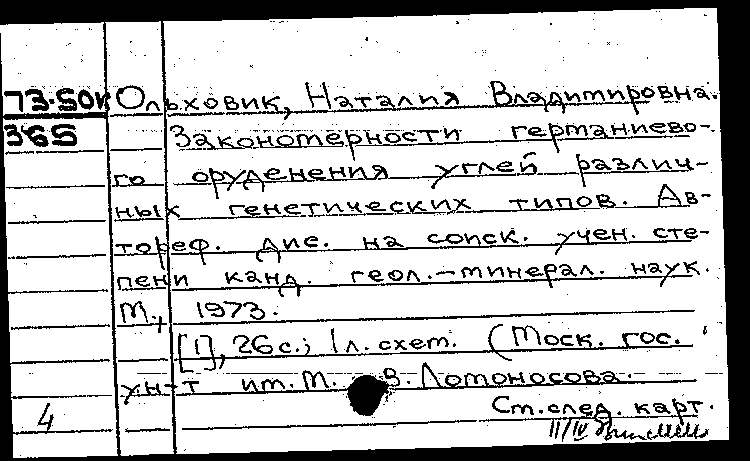 73-50к Ольховик, Наталия Владимировна.
365 Закономерности германиево-
го оруденения углей различ-
ных генетических типов. Ав-
тореф. дис. на соиск. учен. сте-
пени канд. геол.-минерал. наук.
М., 1973.
[1], 26 с.; 1 л. схем. (Моск. гос.
ун-т им. М. В. Ломоносова.
См. след. карт.
4 11/IV